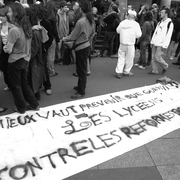 MIEUX VAUT PRÉVENIR QUE
LES LYCÉENS
CONTRE LES REFORMES